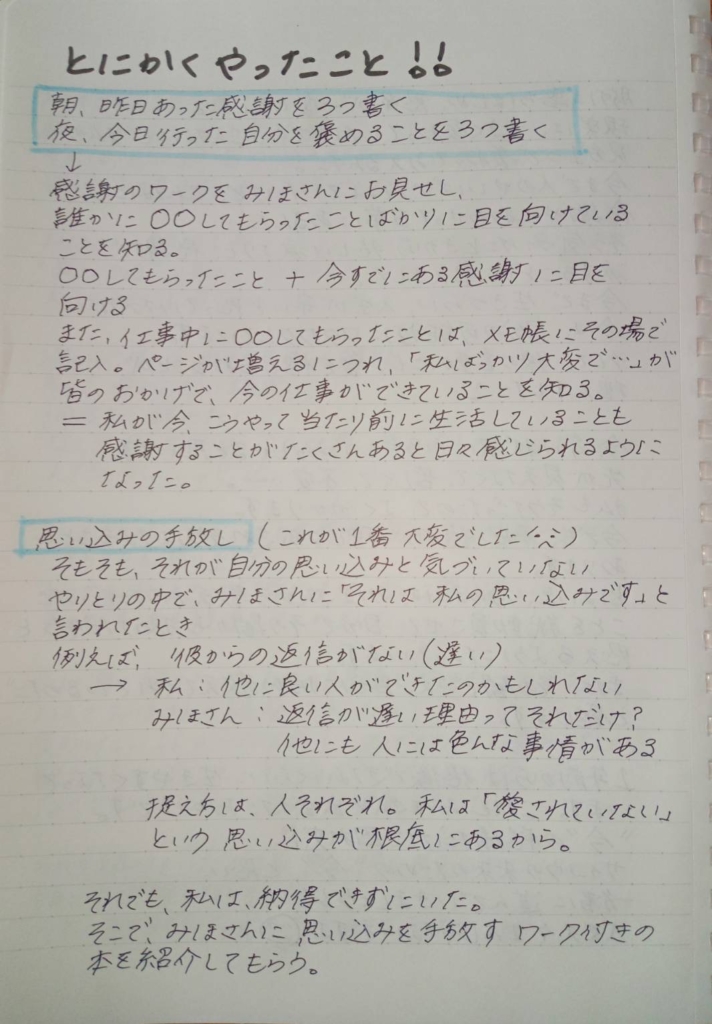 とにかくやったこと!!
朝、昨日あった感謝を3つ書く
夜、今日行った自分を褒めることを3つ書く
↓
感謝のワークをみほさんにお見せし、
誰かに〇〇してもらったことばかりに目を向けている
ことを知る。
〇〇してもらったこと + 今すでにある感謝に目を
向ける
また、仕事中に〇〇してもらったことは、メモ帳にその場で
記入。ページが増えるにつれ、「私ばっかり大変で…」が
皆のおかげで、今の仕事ができていることを知る。
= 私が今、こうやって当たり前に生活していることも
感謝することがたくさんあると日々感じられるように
なった。
思い込みの手放し(これが1番大変でした^^;)
そもそも、それが自分の思い込みと気づいていない
やりとりの中で、みほさんに「それは私の思い込みです」と
言われたとき
例えば、彼からの返信がない(遅い)
→ 私:他に良い人ができたのかもしれない
みほさん:返信が遅い理由ってそれだけ?
他にも人には色んな事情がある
捉え方は、人それぞれ。私は「愛されていない」
という思い込みが根底にあるから。
それでも、私は、納得できずにいた。
そこで、みほさんに思い込みを手放すワーク付きの
本を紹介してもらう。